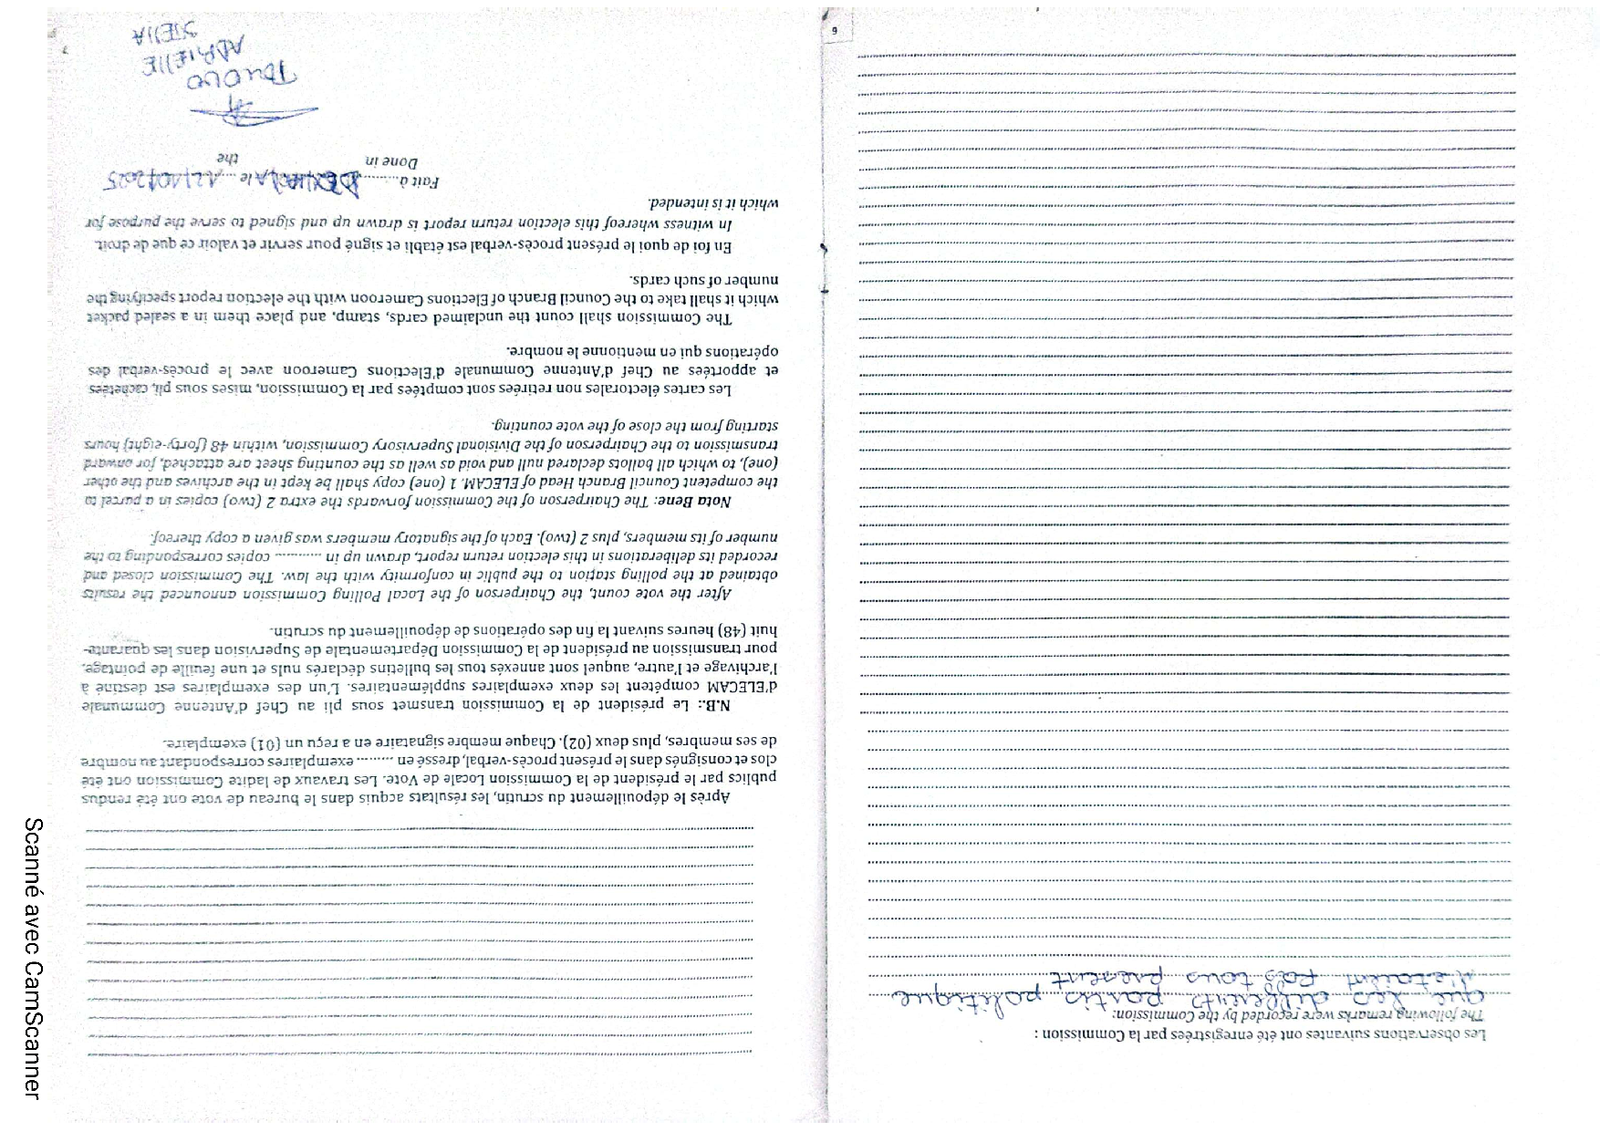 Les observations suivantes ont été enregistrées par la Commission :
The following remarks were recorded by the Commission:
que les differents partis politique
n'etaient pas tous present
6
Après le dépouillement du scrutin, les résultats acquis dans le bureau de vote ont été rendus
publics par le président de la Commission Locale de Vote. Les travaux de ladite Commission ont été
clos et consignés dans le présent procès-verbal, dressé en ......... exemplaires correspondant au nombre
de ses membres, plus deux (02). Chaque membre signataire en a reçu un (01) exemplaire.
N.B.: Le président de la Commission transmet sous pli au Chef d'Antenne Communale
d'ELECAM compétent les deux exemplaires supplémentaires. L'un des exemplaires est destiné à
l'archivage et l'autre, auquel sont annexés tous les bulletins déclarés nuls et une feuille de pointage,
pour transmission au président de la Commission Départementale de Supervision dans les quarante-
huit (48) heures suivant la fin des opérations de dépouillement du scrutin.
After the vote count, the Chairperson of the Local Polling Commission announced the results
obtained at the polling station to the public in conformity with the law. The Commission closed and
recorded its deliberations in this election return report, drawn up in ............ copies corresponding to the
number of its members, plus 2 (two). Each of the signatory members was given a copy thereof.
Nota Bene: The Chairperson of the Commission forwards the extra 2 (two) copies in a parcel to
the competent Council Branch Head of ELECAM. 1 (one) copy shall be kept in the archives and the other
(one), to which all ballots declared null and void as well as the counting sheet are attached, for onward
transmission to the Chairperson of the Divisional Supervisory Commission, within 48 (forty-eight) hours
starting from the close of the vote counting.
Les cartes électorales non retirées sont comptées par la Commission, mises sous pli, cachetées
et apportées au Chef d'Antenne Communale d'Elections Cameroon avec le procès-verbal des
opérations qui en mentionne le nombre.
The Commission shall count the unclaimed cards, stamp, and place them in a sealed packet
which it shall take to the Council Branch of Elections Cameroon with the election report specifying the
number of such cards.
En foi de quoi le présent procès-verbal est établi et signé pour servir et valoir ce que de droit.
In witness whereof this election return report is drawn up and signed to serve the purpose for
which it is intended.
Fait à ......... le 12/10/2025
Done in the
ADRIELLE
STELLA
Scanné avec CamScanner